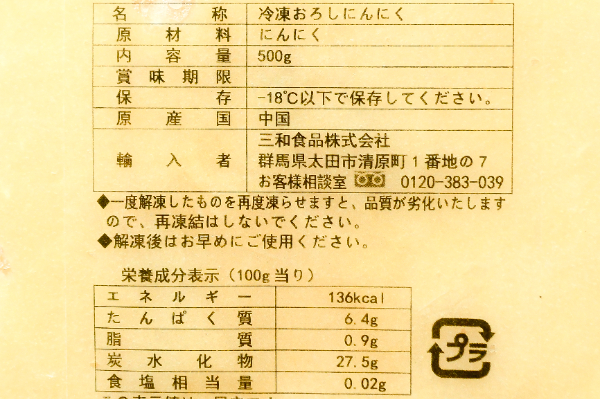 名称 冷凍おろしにんにく
原材料 にんにく
内容量 500g
賞味期限
保存 -18℃以下で保存してください。
原産国 中国
輸入者 三和食品株式会社
群馬県太田市清原町1番地の7
お客様相談室 0120-383-039
◆一度解凍したものを再度凍らせますと、品質が劣化いたします
ので、再凍結はしないでください。
◆解凍後はお早めにご使用ください。
栄養成分表示（100g当り）
エネルギー 136kcal
たんぱく質 6.4g
脂質 0.9g
炭水化物 27.5g
食塩相当量 0.02g
プラ